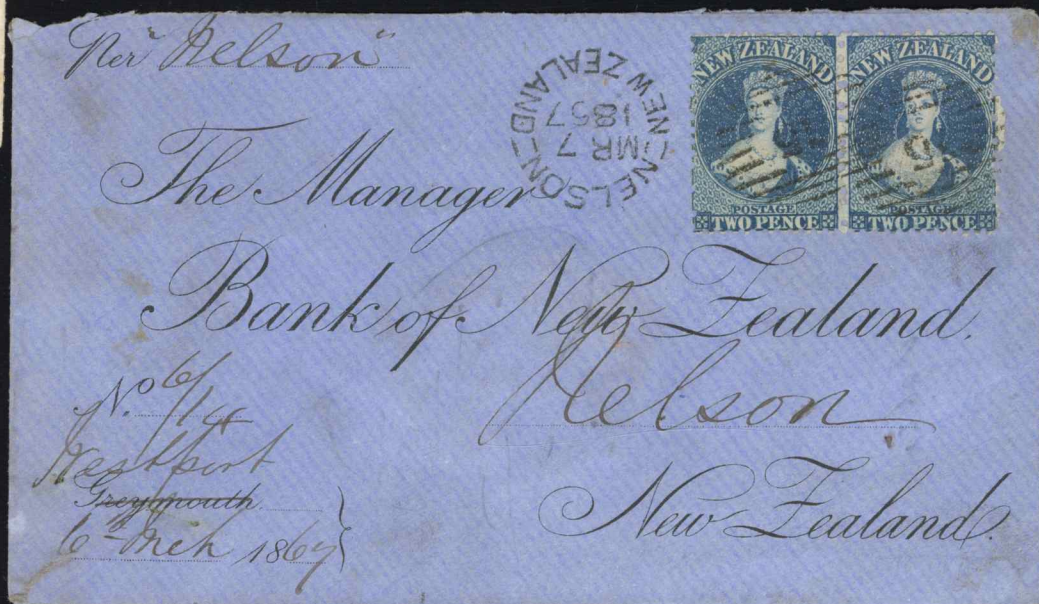 Per "Nelson"
NELSON
NEW ZEALAND
MR 7
1867
NEW ZEALAND
POSTAGE
TWO PENCE
NEW ZEALAND
POSTAGE
TWO PENCE
The Manager
Bank of New Zealand.
Nelson
New Zealand.
No. 6/
Westport
Greymouth
6th Mch 1867